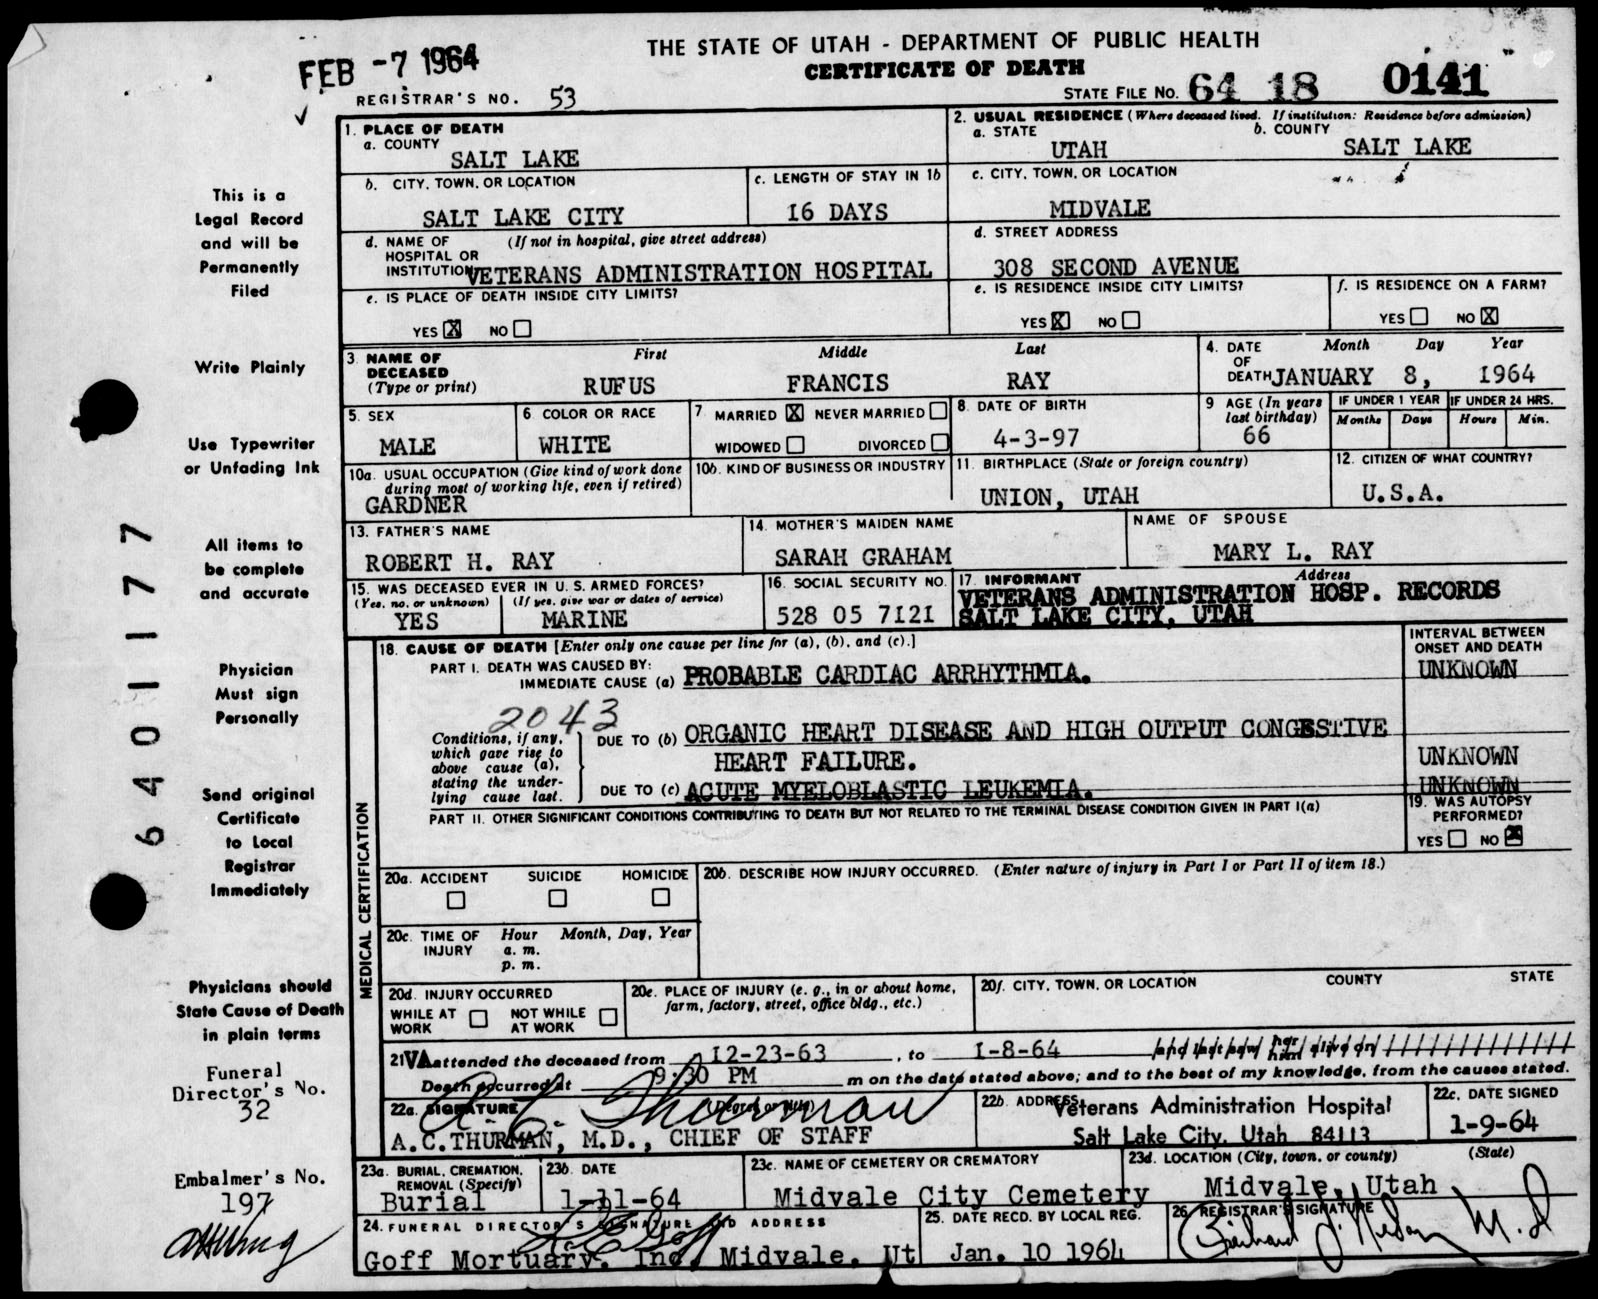 THE STATE OF UTAH - DEPARTMENT OF PUBLIC HEALTH
CERTIFICATE OF DEATH
FEB -7 1964
REGISTRAR'S NO. 53
STATE FILE NO. 64 18 0141
This is a
Legal Record
and will be
Permanently
Filed
Write Plainly
Use Typewriter
or Unfading Ink
All items to
be complete
and accurate
Physician
Must sign
Personally
Send original
Certificate
to Local
Registrar
Immediately
Physicians should
State Cause of Death
in plain terms
Funeral
Director's No.
32
Embalmer's No.
197
6401177
1. PLACE OF DEATH
a. COUNTY
SALT LAKE
2. USUAL RESIDENCE (Where deceased lived. If institution: Residence before admission)
a. STATE b. COUNTY
UTAH SALT LAKE
b. CITY, TOWN, OR LOCATION
SALT LAKE CITY
c. LENGTH OF STAY IN 1b
16 DAYS
c. CITY, TOWN, OR LOCATION
MIDVALE
d. NAME OF (If not in hospital, give street address)
HOSPITAL OR
INSTITUTION VETERANS ADMINISTRATION HOSPITAL
d. STREET ADDRESS
308 SECOND AVENUE
e. IS PLACE OF DEATH INSIDE CITY LIMITS?
YES X NO
e. IS RESIDENCE INSIDE CITY LIMITS?
YES X NO
f. IS RESIDENCE ON A FARM?
YES NO X
3. NAME OF DECEASED (Type or print)
First Middle Last
RUFUS FRANCIS RAY
4. DATE OF DEATH Month Day Year
JANUARY 8, 1964
5. SEX
MALE
6 COLOR OR RACE
WHITE
7 MARRIED X NEVER MARRIED
WIDOWED DIVORCED
8. DATE OF BIRTH
4-3-97
9 AGE (In years last birthday)
66
IF UNDER 1 YEAR IF UNDER 24 HRS.
Months Days Hours Min.
10a. USUAL OCCUPATION (Give kind of work done
during most of working life, even if retired)
GARDNER
10b. KIND OF BUSINESS OR INDUSTRY
11. BIRTHPLACE (State or foreign country)
UNION, UTAH
12. CITIZEN OF WHAT COUNTRY?
U.S.A.
13. FATHER'S NAME
ROBERT H. RAY
14. MOTHER'S MAIDEN NAME
SARAH GRAHAM
NAME OF SPOUSE
MARY L. RAY
15. WAS DECEASED EVER IN U.S. ARMED FORCES?
(Yes, no, or unknown) (If yes, give war or dates of service)
YES MARINE
16. SOCIAL SECURITY NO.
528 05 7121
17. INFORMANT Address
VETERANS ADMINISTRATION HOSP. RECORDS
SALT LAKE CITY, UTAH
MEDICAL CERTIFICATION
18. CAUSE OF DEATH [Enter only one cause per line for (a), (b), and (c).]
INTERVAL BETWEEN
ONSET AND DEATH
PART I. DEATH WAS CAUSED BY:
IMMEDIATE CAUSE (a) PROBABLE CARDIAC ARRHYTHMIA. UNKNOWN
2043
Conditions, if any,
which gave rise to
above cause (a),
stating the under-
lying cause last.
DUE TO (b) ORGANIC HEART DISEASE AND HIGH OUTPUT CONGESTIVE
HEART FAILURE. UNKNOWN
DUE TO (c) ACUTE MYELOBLASTIC LEUKEMIA. UNKNOWN
PART II. OTHER SIGNIFICANT CONDITIONS CONTRIBUTING TO DEATH BUT NOT RELATED TO THE TERMINAL DISEASE CONDITION GIVEN IN PART I(a)
19. WAS AUTOPSY
PERFORMED?
YES NO X
20a. ACCIDENT SUICIDE HOMICIDE
20b. DESCRIBE HOW INJURY OCCURRED. (Enter nature of injury in Part I or Part II of item 18.)
20c. TIME OF INJURY Hour Month, Day, Year
a. m.
p. m.
20d. INJURY OCCURRED
WHILE AT WORK NOT WHILE AT WORK
20e. PLACE OF INJURY (e. g., in or about home,
farm, factory, street, office bldg., etc.)
20f. CITY, TOWN, OR LOCATION COUNTY STATE
21 VA attended the deceased from 12-23-63, to 1-8-64 and last saw her him alive on
Death occurred at 9:30 PM m on the date stated above; and to the best of my knowledge, from the causes stated.
22a. SIGNATURE (Degree or title)
A. C. Thurman
A.C. THURMAN, M.D., CHIEF OF STAFF
22b. ADDRESS Veterans Administration Hospital
Salt Lake City, Utah 84113
22c. DATE SIGNED
1-9-64
23a. BURIAL, CREMATION,
REMOVAL (Specify)
Burial
23b. DATE
1-11-64
23c. NAME OF CEMETERY OR CREMATORY
Midvale City Cemetery
23d. LOCATION (City, town, or county) (State)
Midvale, Utah
24. FUNERAL DIRECTOR'S SIGNATURE AND ADDRESS
Goff Mortuary, Inc. Midvale, Ut
25. DATE RECD. BY LOCAL REG.
Jan. 10 1964
26 REGISTRAR'S SIGNATURE
M.D